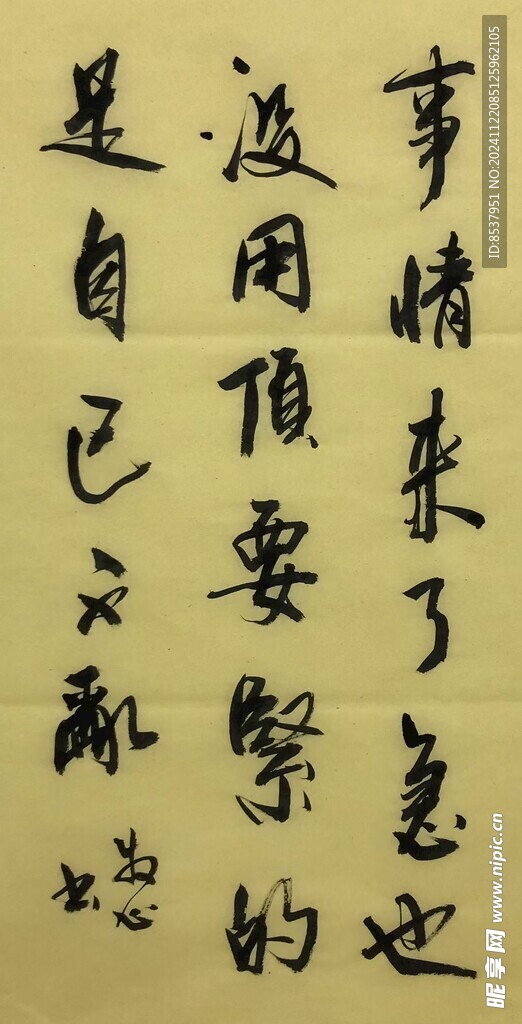 事情来了急也
没用頂要緊的
是自己不亂
書
ID:8537951 NO:20241122085125962105
昵享网 www.nipic.cn